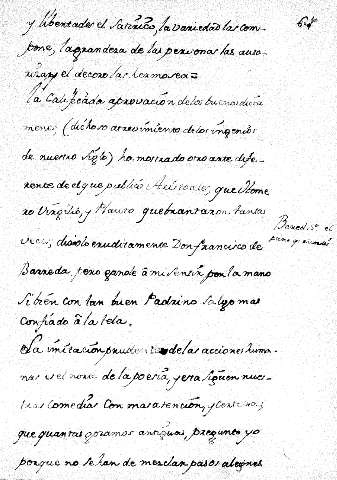 64
y libertades el satirico, la variedad las com-
pone, la grandeza de las personas las auto-
rizan, y el decoro las hermosea =
La Calificada aprovacion de los buenos dicta
menes (dichoso atrevimiento de los ingenios
de nuestro siglo) ha mostrado otro arte dife-
rente de el que publicó Aristoteles, que Home
ro Virgilio, y Plauto quebrantaron tantas
veces; dixolo eruditamente Don francisco de
Barreda, pero ganole á mi sentir por la mano
si bien con tan buen Padrino salgo mas
confiado á la tela.
La imitacion prudente de las acciones huma-
nas es el norte de la poesia, y esta siguen nues-
tras comedias con mas atencion, y certeza;
que quantas gozamos antiguas, pregunto yo
porque no se han de mezclar pasos alegres
Barred. el